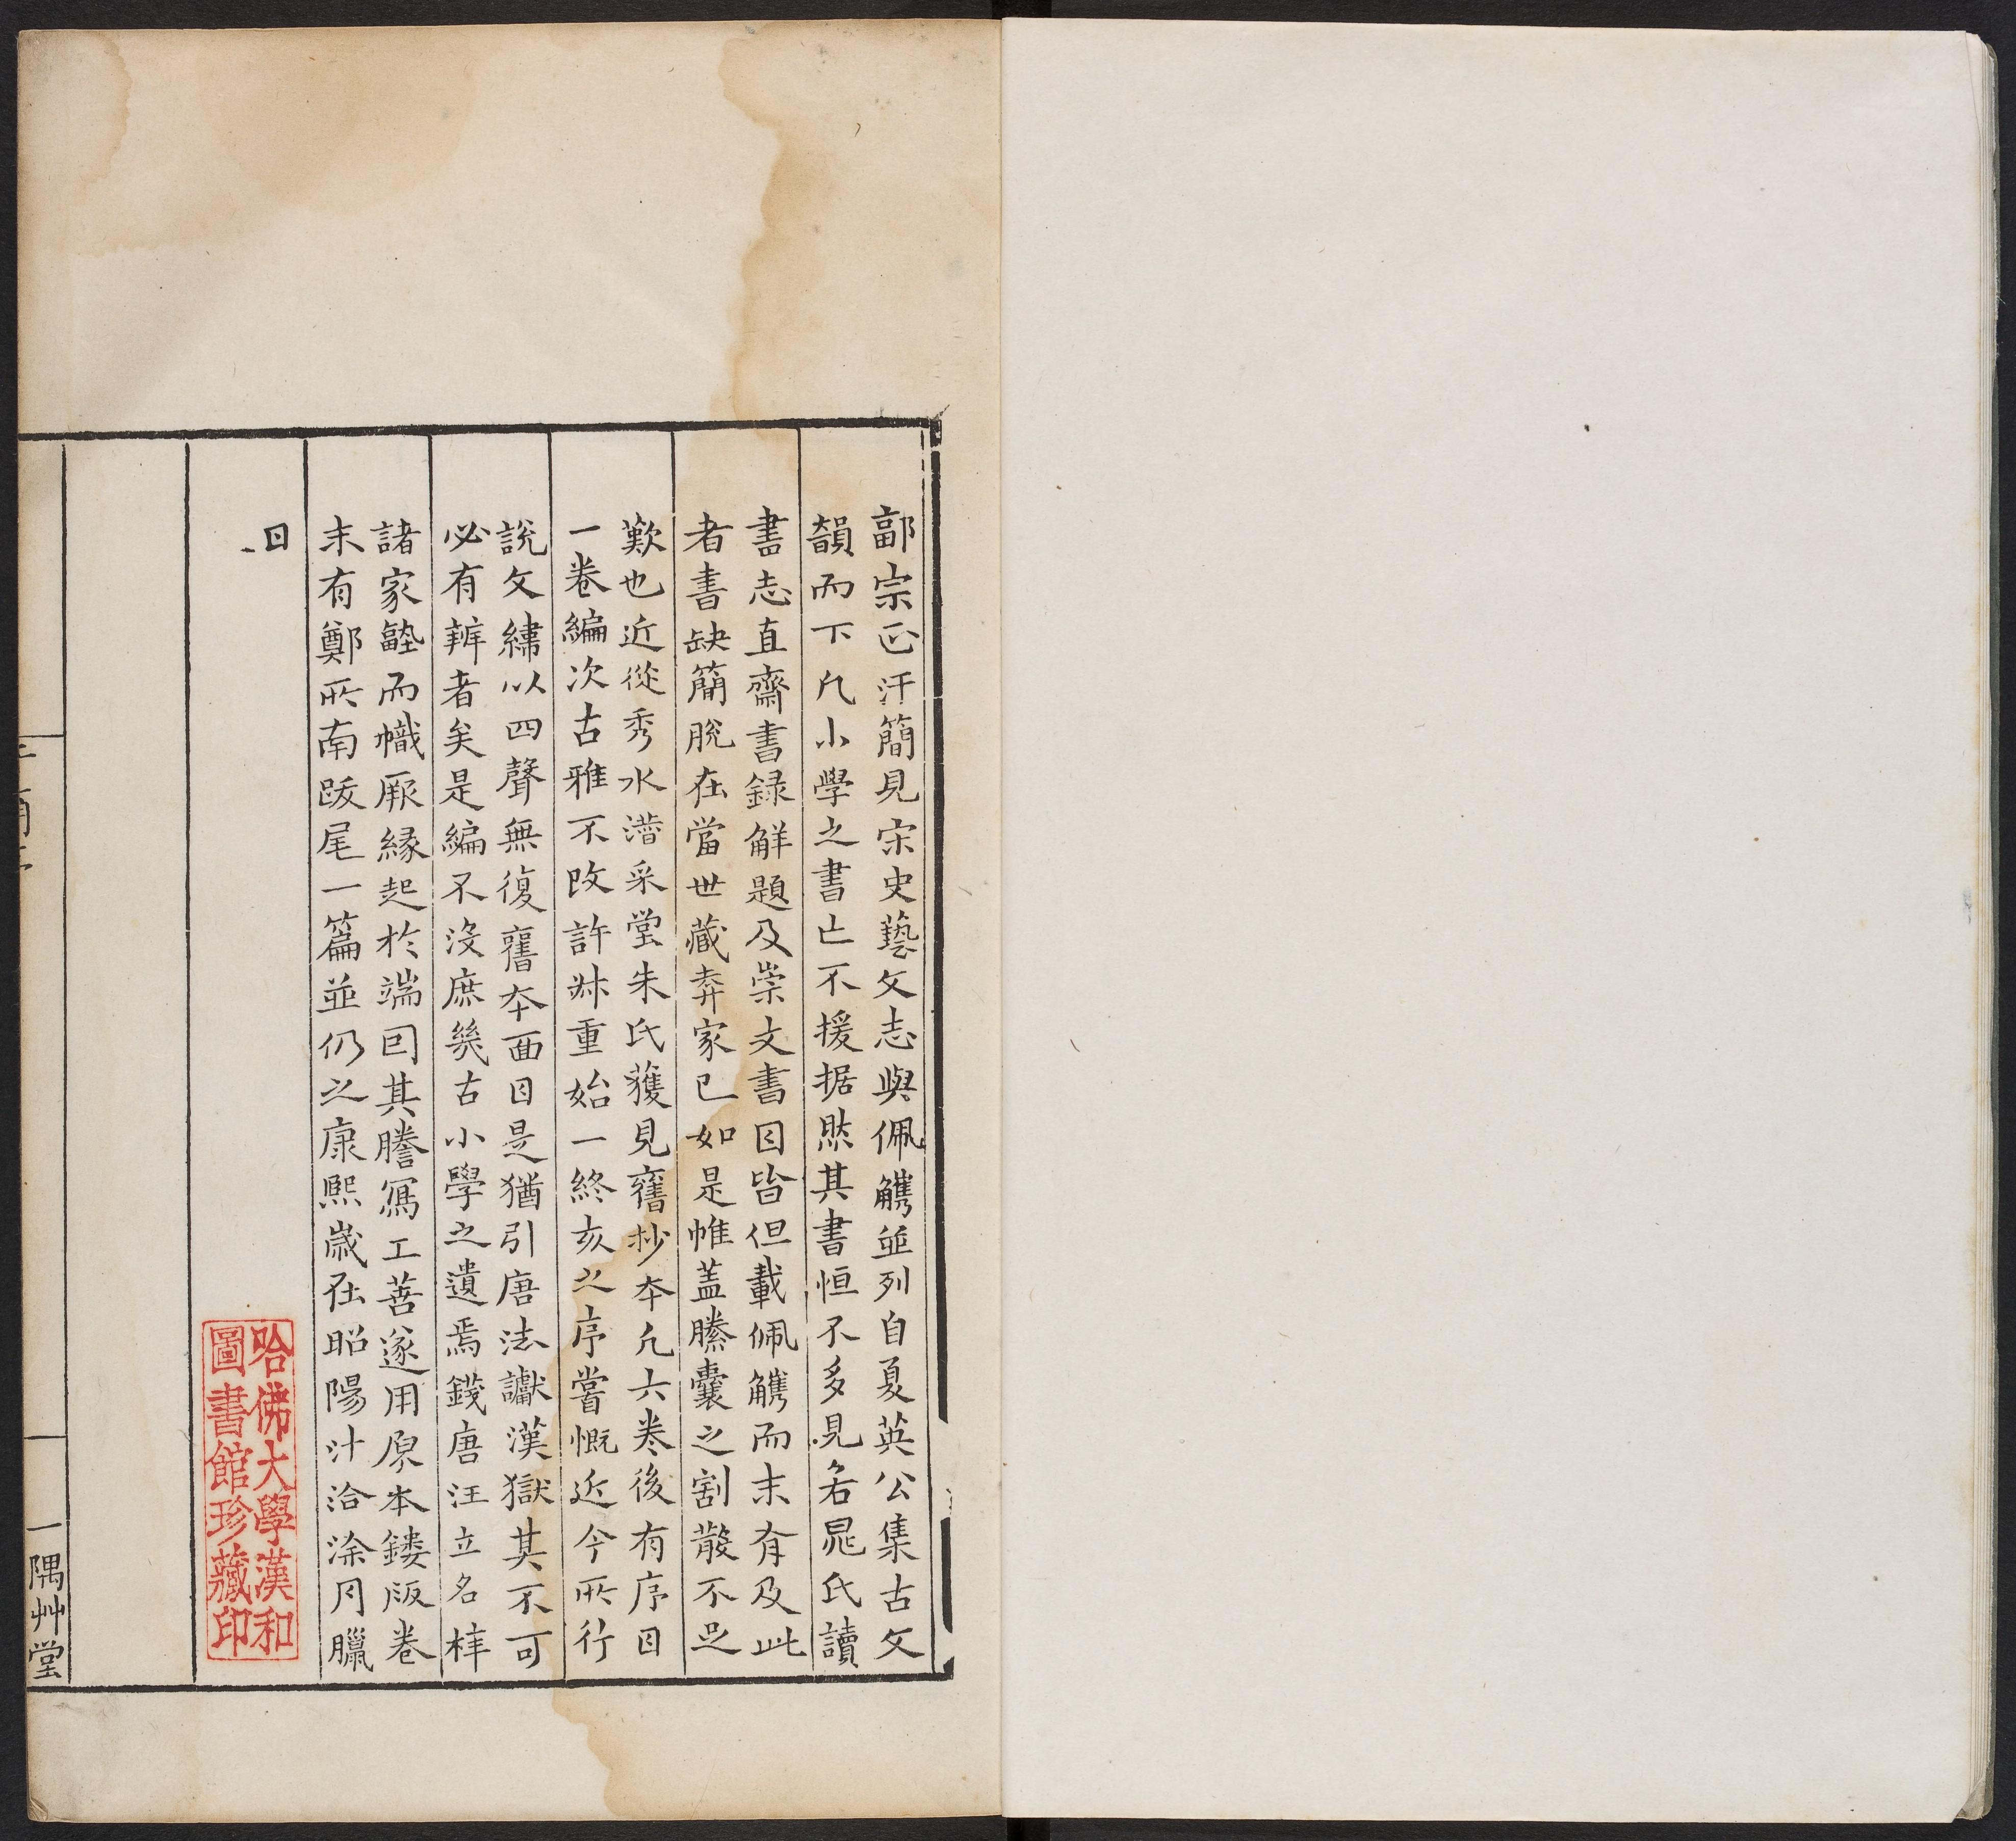 郭宗正汗簡見宋史藝文志與佩觿並列自夏英公集古文
韻而下凡小學之書亡不援据然其書恒不多見若晁氏讀
書志直齋書録解題及崇文書目皆但載佩觿而未有及此
者書缺簡脫在當世藏弆家已如是帷蓋縢囊之割散不足
歎也近從秀水潛采堂朱氏獲見舊抄本凡六卷後有序目
一卷編次古雅不改許叔重始一終亥之序嘗慨近今所行
說文繡以四聲無復舊本面目是猶引唐法讞漢獄其不可
必有辯者矣是編不沒庶幾古小學之遺焉錢唐汪立名梓
諸家塾而幟厥緣起於端因其謄寫工善遂用原本鏤版卷
末有鄭所南跋尾一篇並仍之康熙歲在昭陽汁洽涂月臘
日
一隅艸堂
哈佛大學漢和
圖書館珍藏印